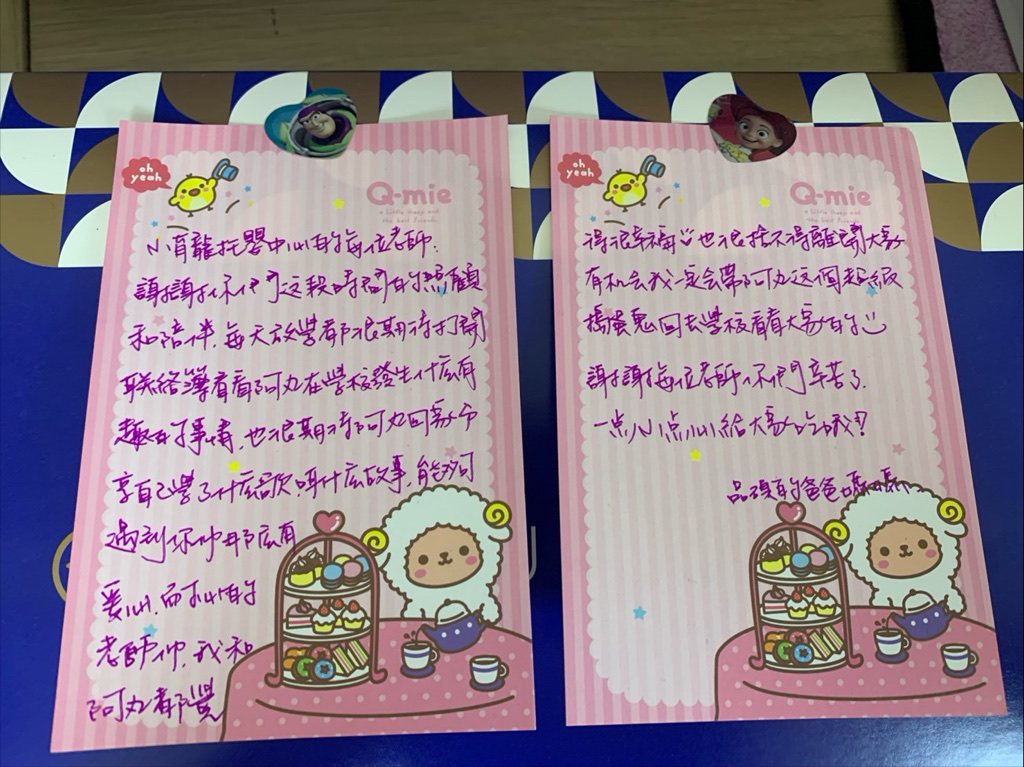 oh
yeah
Q-mie
a little sheep and
the best friends
小青龍托嬰中心的每位老師:
謝謝你們這段時間的照顧
和陪伴,每天放學都很期待打開
联絡簿看看阿丸在學校發生什麼有
趣的事情,也很期待阿丸回家分
享自己學了什麼歌.聽什麼故事,能夠
遇到你們那麼有
愛心,有耐心的
老師們,我和
阿丸都覺
oh
yeah
Q-mie
a little sheep and
the best friends
得很幸福也很捨不得離開大家
有机会我一定会帶阿丸這個超級
搗蛋鬼回去學校看看大家的
謝謝每位老師你們辛苦了.
一点小点心給大家吃哦!
的爸爸媽媽